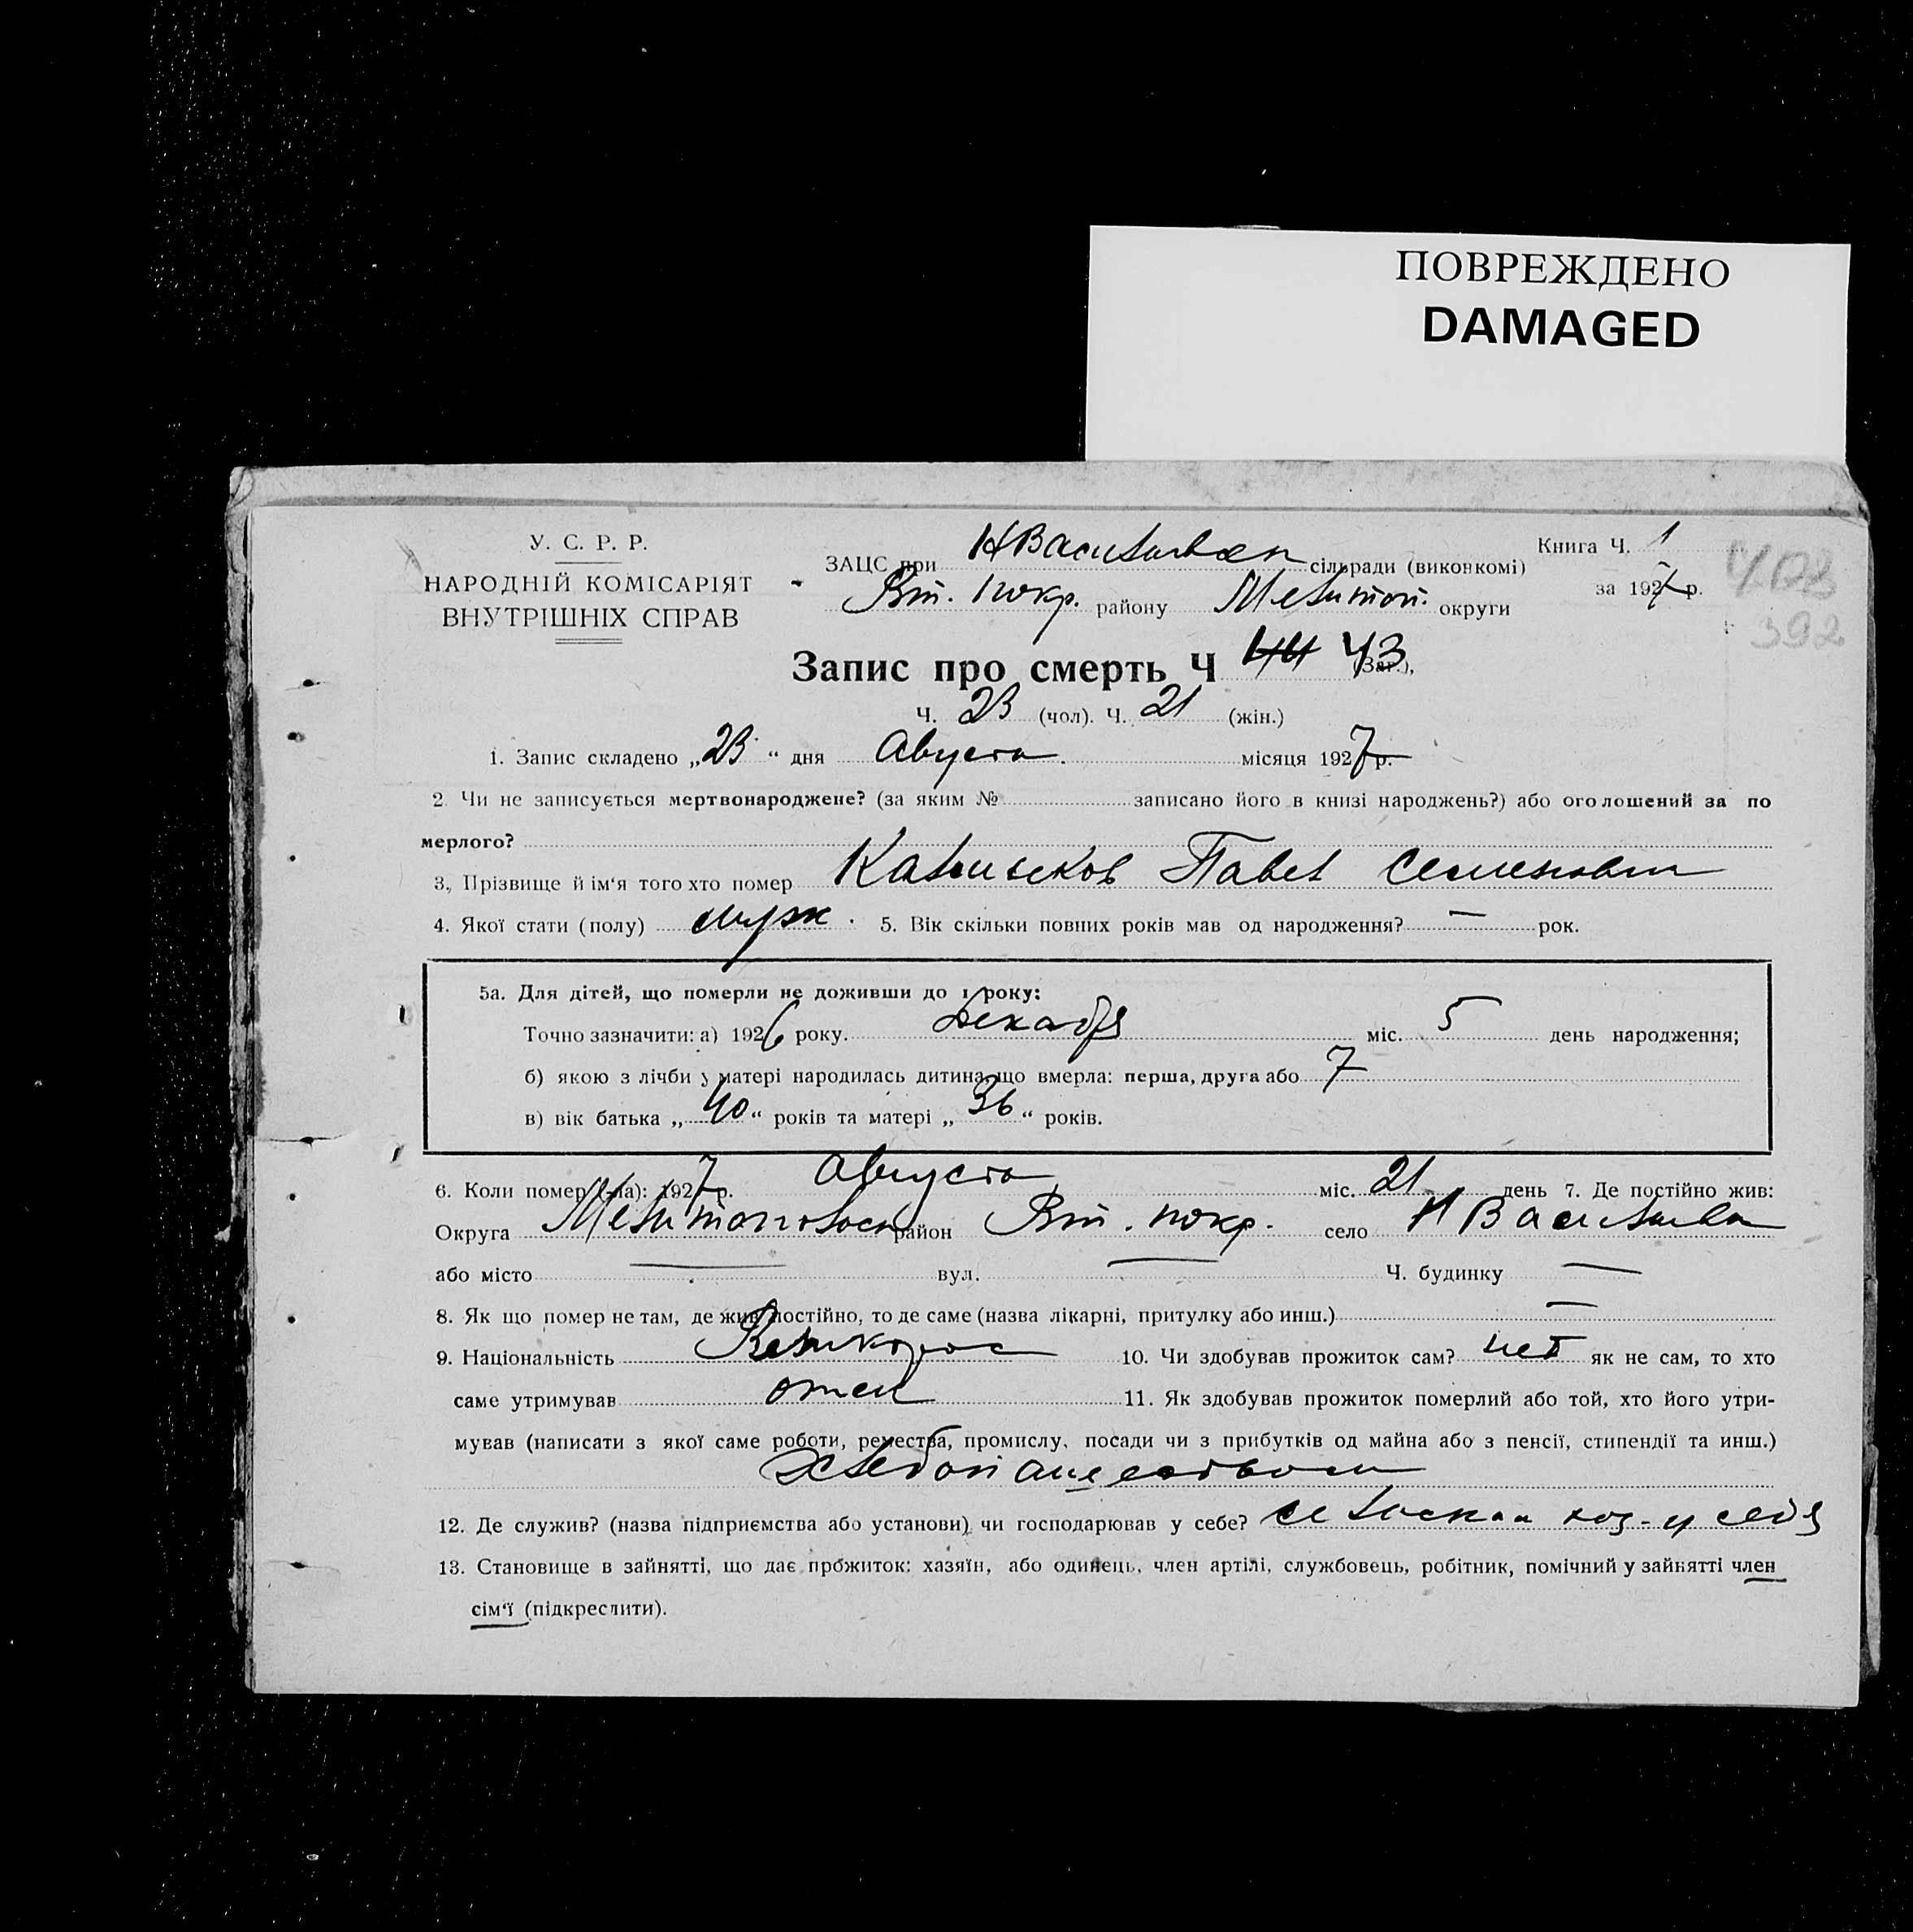 ПОВРЕЖДЕНО
DAMAGED
У. С. Р. Р.
НАРОДНІЙ КОМІСАРІЯТ
ВНУТРІШНІХ СПРАВ
ЗАЦС при НВасильевск сільради (виконкомі)
Вт. покр. району Мелитоп. округи
Книга Ч. 1
за 1927 р.
403
392
Запис про смерть Ч 44 43 (Заг.),
Ч. 23 (чол). Ч. 21 (жін.)
1. Запис складено „23“ дня Августа місяця 1927 р.
2. Чи не записується мертвонароджене? (за яким № записано його в книзі народжень?) або оголошений за по
мерлого?
3. Прізвище й ім‘я того хто помер Павел Семенович
4. Якої стати (полу) муж. 5. Вік скільки повних років мав од народження? — рок.
5а. Для дітей, що померли не доживши до 1 року:
Точно зазначити: а) 1926 року. Декабря міс. 5 день народження;
б) якою з лічби у матері народилась дитина, що вмерла: перша, друга або 7
в) вік батька „40“ років та матері „36“ років.
6. Коли помер (-ла): 1927 р. Августа міс. 21 день 7. Де постійно жив:
Округа Мелитопольск район Вт. покр. село Н Васильевка
або місто — вул. — Ч. будинку —
8. Як що помер не там, де жив постійно, то де саме (назва лікарні, притулку або инш.) —
9. Національність Великорос 10. Чи здобував прожиток сам? нет як не сам, то хто
саме утримував отец 11. Як здобував прожиток померлий або той, хто його утри-
мував (написати з якої саме роботи, ремества, промислу, посади чи з прибутків од майна або з пенсії, стипендії та инш.)
Хлебопашеством
12. Де служив? (назва підприємства або установи) чи господарював у себе? сельском хоз-у себя
13. Становище в зайнятті, що дає прожиток: хазяїн, або одинець, член артілі, службовець, робітник, помічний у зайнятті член
сім‘ї (підкреслити).